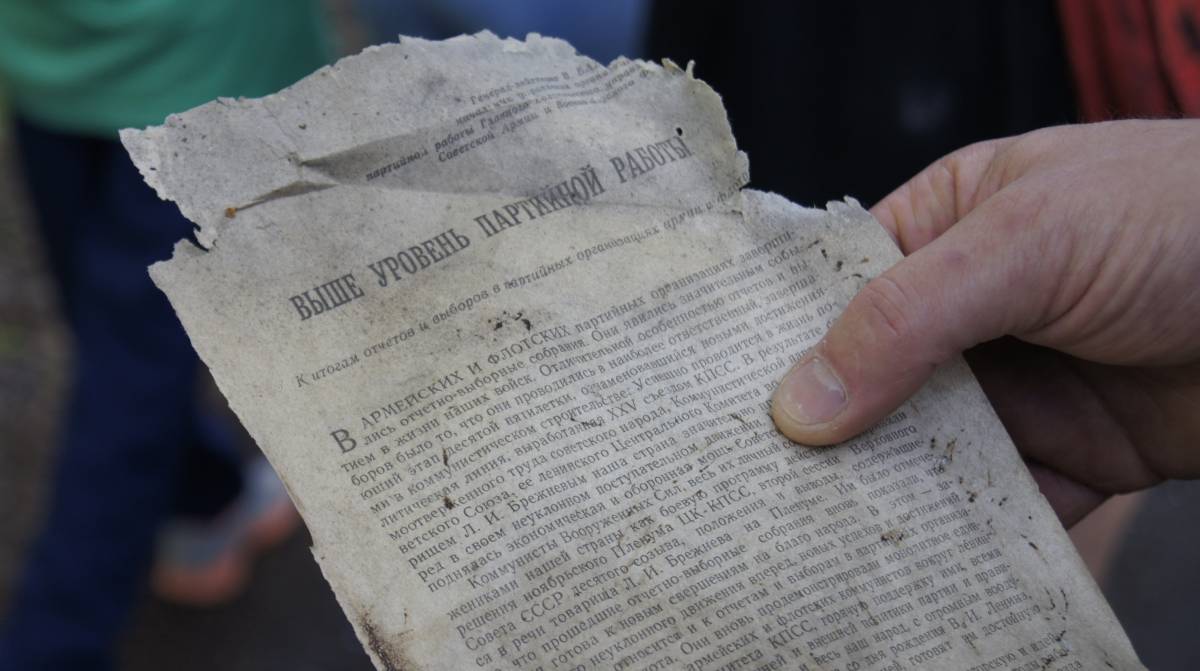 Генерал-лейтенант В.
партийной работы Главного
Советской Армии и Военно-
ВЫШЕ УРОВЕНЬ ПАРТИЙНОЙ РАБОТЫ
К итогам отчетов и выборов в партийных организациях армии и
В АРМЕЙСКИХ И ФЛОТСКИХ партийных организациях заверши-
лись отчетно-выборные собрания. Они явились значительным собы-
тием в жизни наших войск. Отличительной особенностью отчетов и вы-
боров было то, что они проводились в наиболее ответственный, заверша-
ющий этап десятой пятилетки, ознаменовавшийся новыми достижени
ми в коммунистическом строительстве. Успешно проводится в жизнь по-
литическая линия, выработанная XXV съездом КПСС. В результате
моотверженного труда советского народа, Коммунистической
ветского Союза, ее ленинского Центрального Комитета во
рищем Л. И. Брежневым наша страна значительно
ред в своем неуклонном поступательном движении
поднялась экономическая и оборонная мощь Советского
Коммунисты Вооруженных Сил, весь их личный
жениками нашей страны как боевую программу
решения ноябрьского Пленума ЦК КПСС, второй сессии Верховного
Совета СССР десятого созыва, положения и выводы, содержащие-
ся в речи товарища Л. И. Брежнева на Пленуме.
что прошедшие отчетно-выборные собрания вновь показали,
готова к новым свершениям на благо народа. В этом — за-
неуклонного движения вперед, новых успехов и достижений.
относится и к отчетам и выборам в партийных организа-
Они вновь продемонстрировали монолитное един-
армейских и флотских коммунистов вокруг ленин-
КПСС, горячую поддержку ими, всеми
и внешней политики партии и прави-
весь наш народ, с огромным вооду-
со дня рождения В. И. Ленина,
готовят достойную